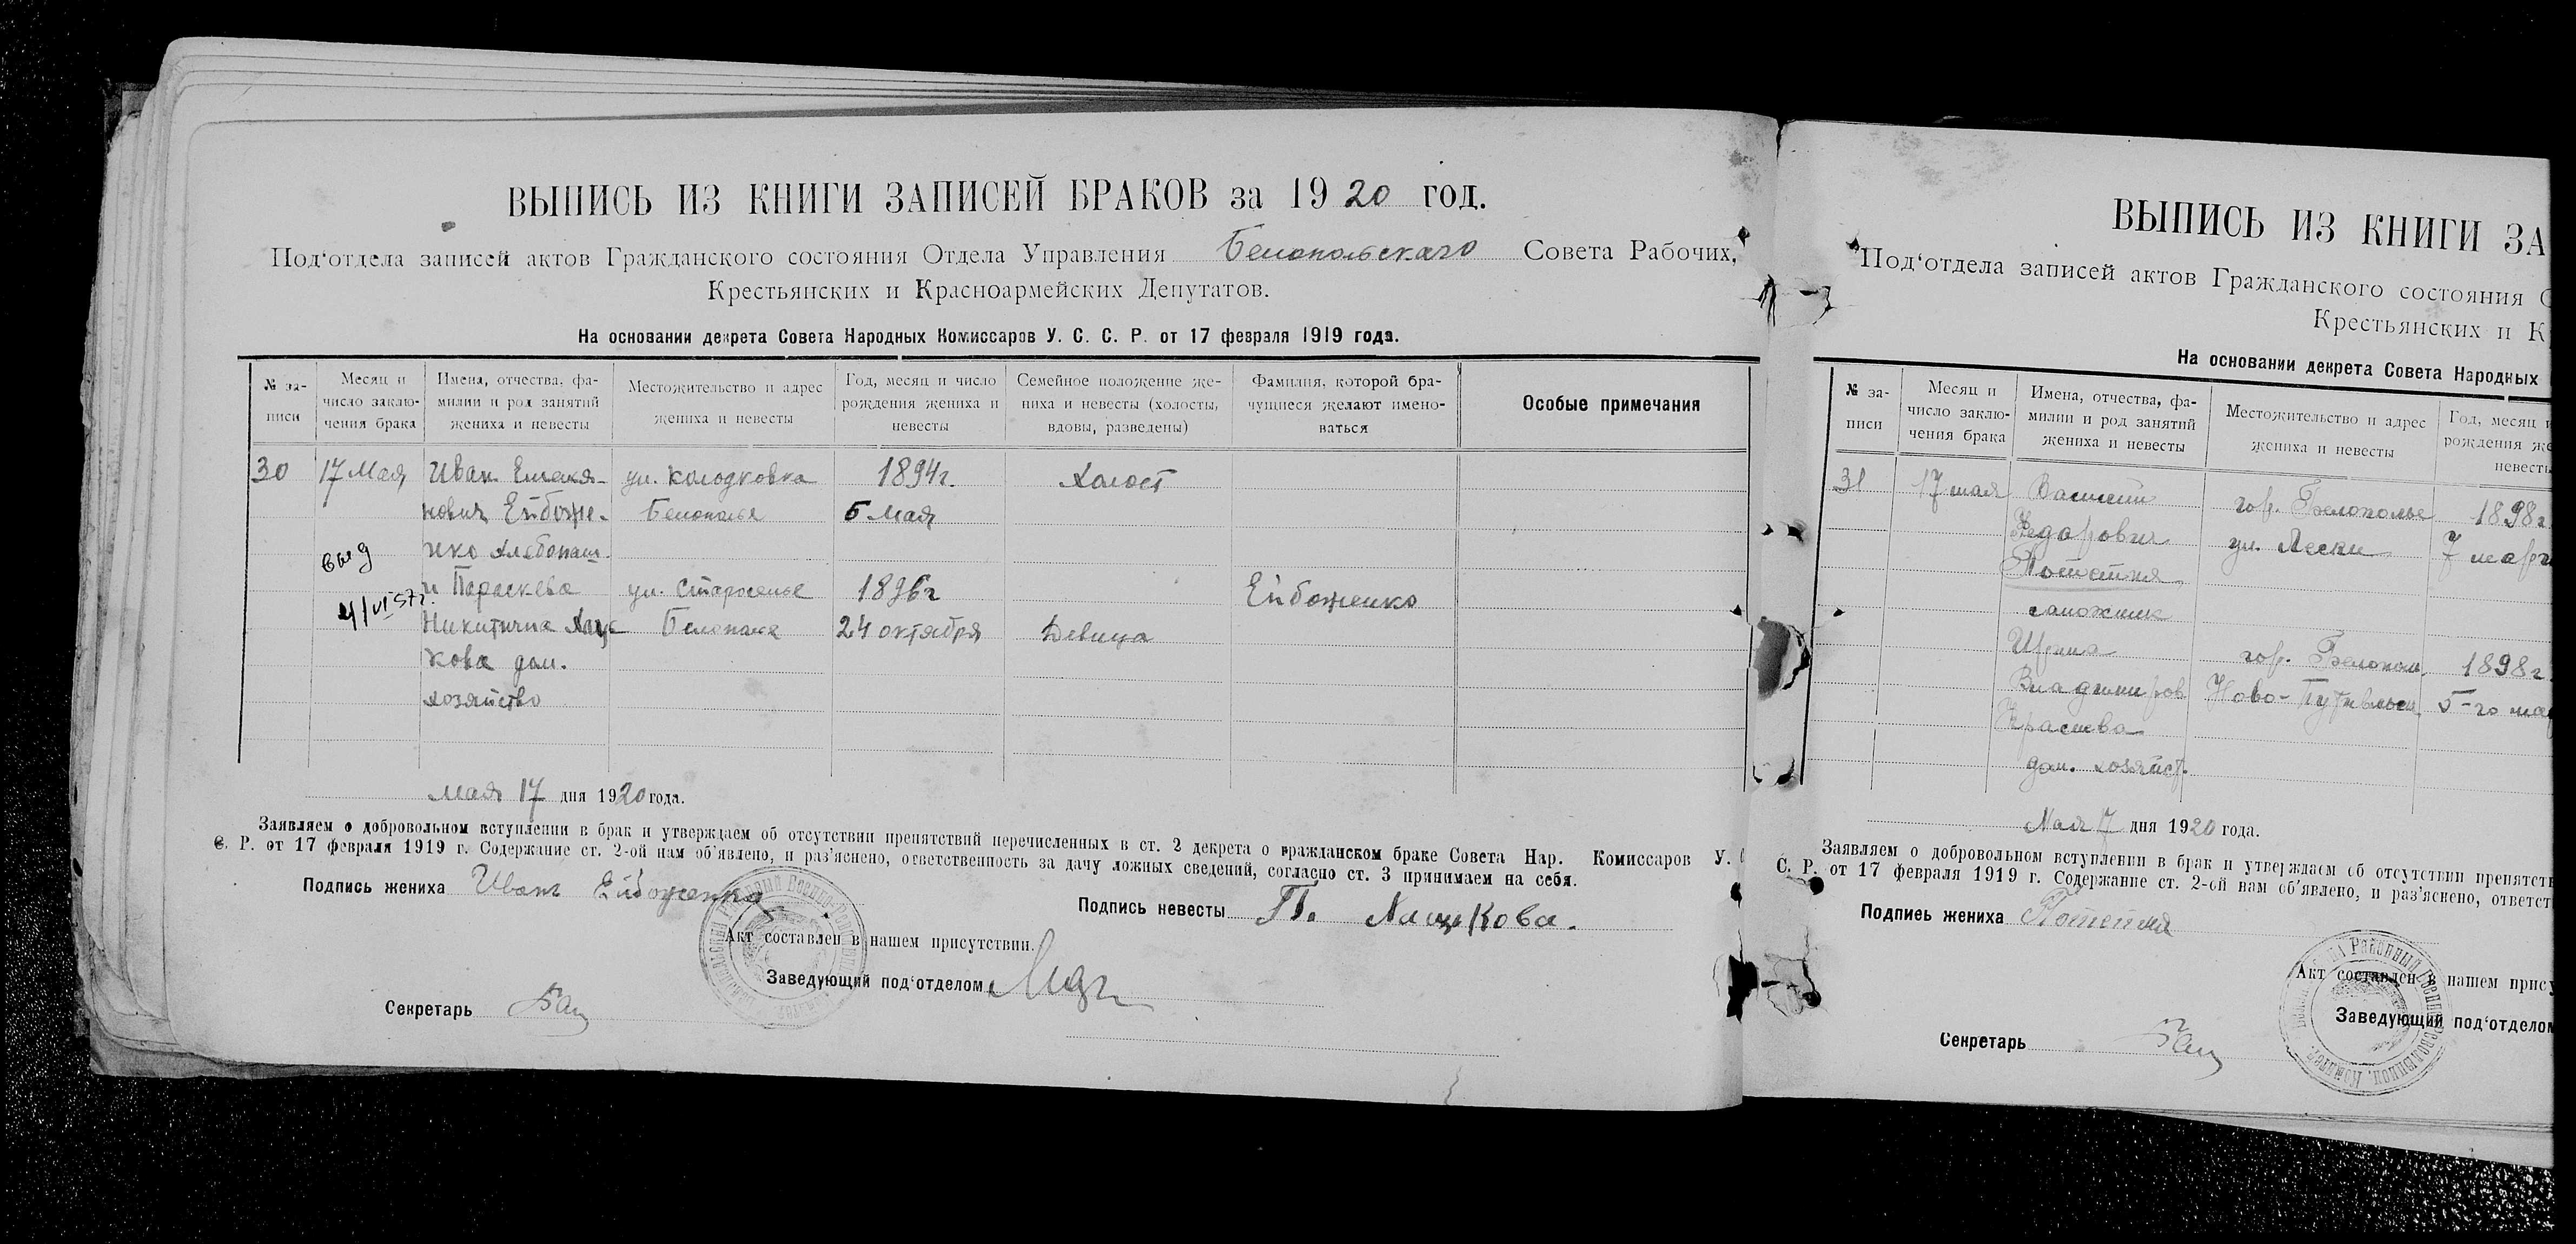 ВЫПИСЬ ИЗ КНИГИ ЗАПИСЕЙ БРАКОВ за 1920 год.
Под‘отдела записей актов Гражданского состояния Отдела Управления Белопольскаго Совета Рабочих,
Крестьянских и Красноармейских Депутатов.
На основании декрета Совета Народных Комиссаров У. С. С. Р. от 17 февраля 1919 года.
№ за-
писи
Месяц и
число заклю-
чения брака
Имена, отчества, фа-
милии и род занятий
жениха и невесты
Местожительство и адрес
жениха и невесты
Год, месяц и число
рождения жениха и
невесты
Семейное положение же-
ниха и невесты (холосты,
вдовы, разведены)
Фамилия, которой бра-
чущиеся желают имено-
ваться
Особые примечания
30 17 Мая Иван Емелья- ул. Колодковка 1894г. Холост
нович Ейбоже- Белополье 6 Мая
нко Хлебопаш.
и Параскева ул. Староселье 1896г Ейбоженко
Никитична Белополье 24 октября Девица
кова дом.
хозяйство
выд
4/VI 57г.
Мая 17 дня 1920 года.
Заявляем о добровольном вступлении в брак и утверждаем об отсутствии препятствий перечисленных в ст. 2 декрета о гражданском браке Совета Нар. Комиссаров У.
С. Р. от 17 февраля 1919 г. Содержание ст. 2-ой нам об‘явлено, и раз‘яснено, ответственность за дачу ложных сведений, согласно ст. 3 принимаем на себя.
Подпись жениха Иван Ейбоженко
Подпись невесты П. Лацкова.
Акт составлен в нашем присутствии.
Заведующий под‘отделом
Секретарь
ВЫПИСЬ ИЗ КНИГИ ЗА
Под‘отдела записей актов Гражданского состояния
Крестьянских и К
На основании декрета Совета Народных
№ за-
писи
Месяц и
число заклю-
чения брака
Имена, отчества, фа-
милии и род занятий
жениха и невесты
Местожительство и адрес
жениха и невесты
Год, месяц и
рождения же
невесты
31 17 мая Василий гор. Белополье 1898г
Федорович ул. Лески 7 мар
Потетня
сапожник
Ирина гор. Белополь 1898г.
Владимиров Ново-Путивльск 5-го мар
Красива
дом. хозяйст.
Мая 17 дня 1920 года.
Заявляем о добровольном вступлении в брак и утверждаем об отсутствии препятств
С. Р. от 17 февраля 1919 г. Содержание ст. 2-ой нам об‘явлено, и раз‘яснено, ответст
Подпись жениха Потетня
Акт составлен в нашем прису
Заведующий под‘отделом
Секретарь